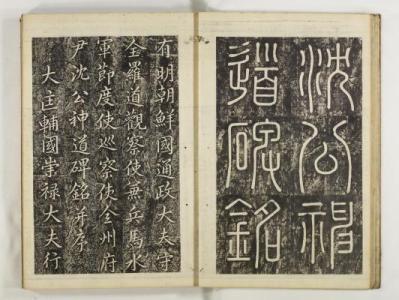 沈公神
道碑銘
有明朝鮮國通政大夫守
全羅道觀察使兼兵馬水
軍節度使巡察使全州府
尹沈公神道碑銘并序
大匡輔國崇祿大夫行